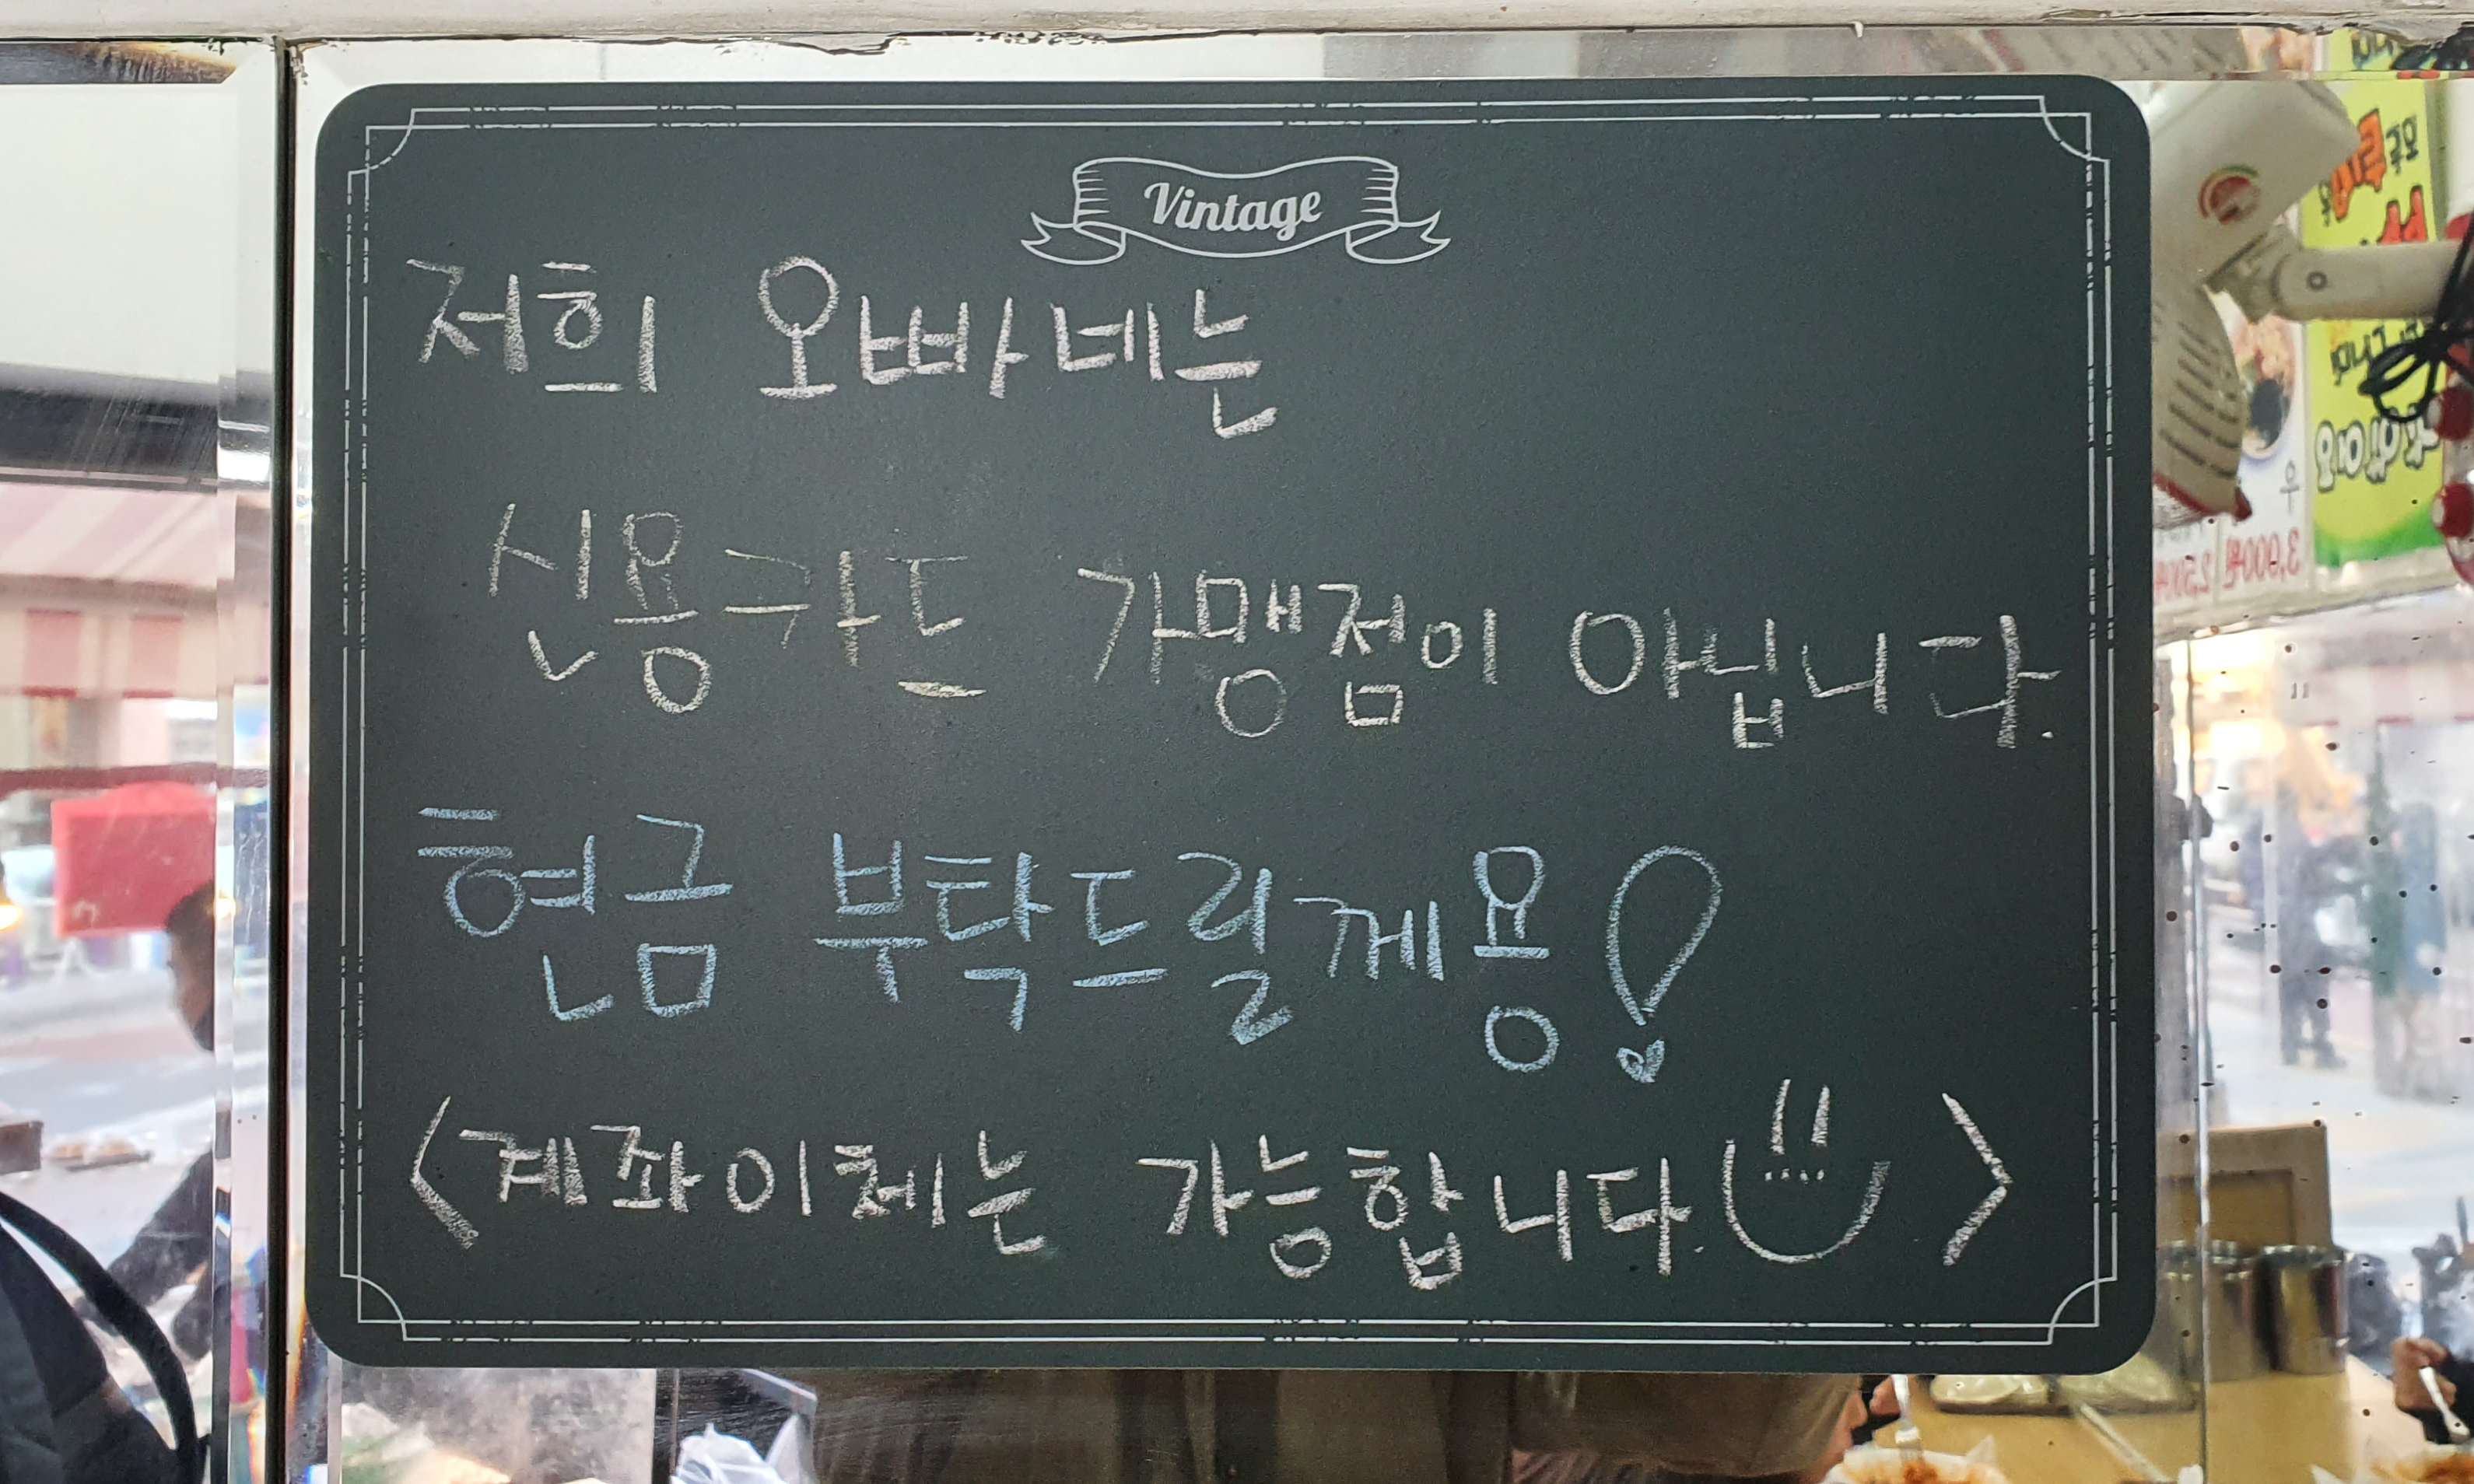 Vintage
저희 오빠네는
신용카드 가맹점이 아닙니다.
현금 부탁드릴께용!
<계좌이체는 가능합니다.>
3,900원
2,500원